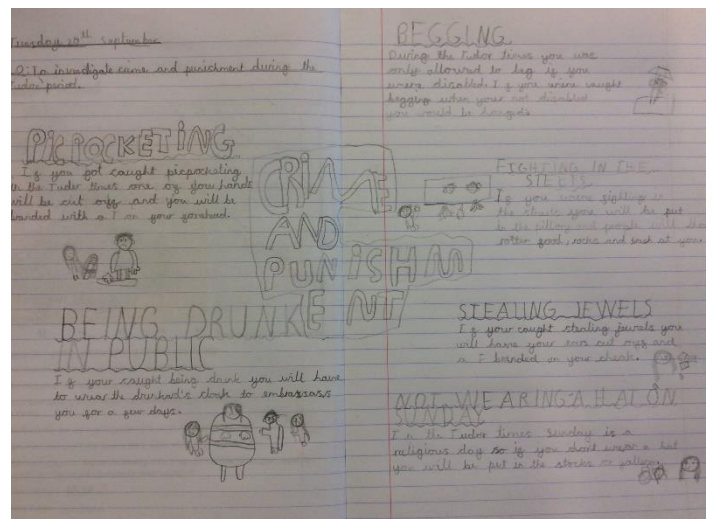 Tuesday 20th September
Q: To investigate crime and punishment during the
Tudor period.
PICPOCKETING
If you got caught picpocketing
in the Tudor times one of your hands
will be cut off and you will be
branded with a T on your forehead.
CRIME
AND
PUNISHM
ENT
BEING DRUNK
IN PUBLIC
If your caught being drunk you will have
to wear the drunkad's cloak to embrassass
you for a few days.
BEGGING
During the Tudor times you was
only allowed to beg if you
were disabled. If you were caught
begging when your not disabled
you would be hanged.
FIGHTING IN THE
STEETS
If you were fighting in
the streets you will be put
in the pillory and people will
rotten food, rocks and such at you
STEALING JEWELS
If your caught stealing jewels you
will have your ears cut off and
a T branded on your cheek.
NOT WEARING A HAT ON
SUNDAY
In the Tudor times Sunday is a
religious day so if you don't wear a hat
you will be put in the stocks or pillory.